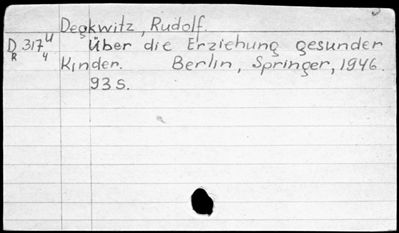 Degkwitz, Rudolf.
D 317 U Über die Erziehung gesunder
R 4 Kinder. Berlin, Springer, 1946.
93 S.